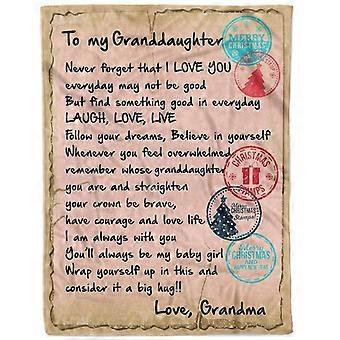 To my Granddaughter
MERRY
CHRISTMAS
Never forget that I LOVE YOU
everyday may not be good
But find something good in everyday
LAUGH, LOVE, LIVE
Follow your dreams, Believe in yourself
Whenever you feel overwhelmed
remember whose granddaughter
CHRISTMAS
STAMPS
you are and straighten
your crown be brave,
Merry
CHRISTMAS
Stamps
have courage and love life
I am always with you
Merry
CHRISTMAS
AND
HAPPY NEW YEAR
You'll always be my baby girl
Wrap yourself up in this and
consider it a big hug!!
Love, Grandma